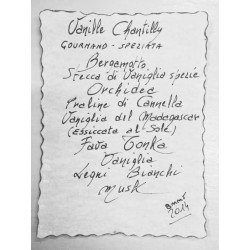 Vanille Chantilly
GOURMAND - SPEZIATA
Bergamotto
Stecca di Vaniglia spezie
Orchidea
Praline di Cannella
Vaniglia del Madagascar
(Essiccata al Sole)
Fava Tonka
Vaniglia
Legni Bianchi
Musk
2014